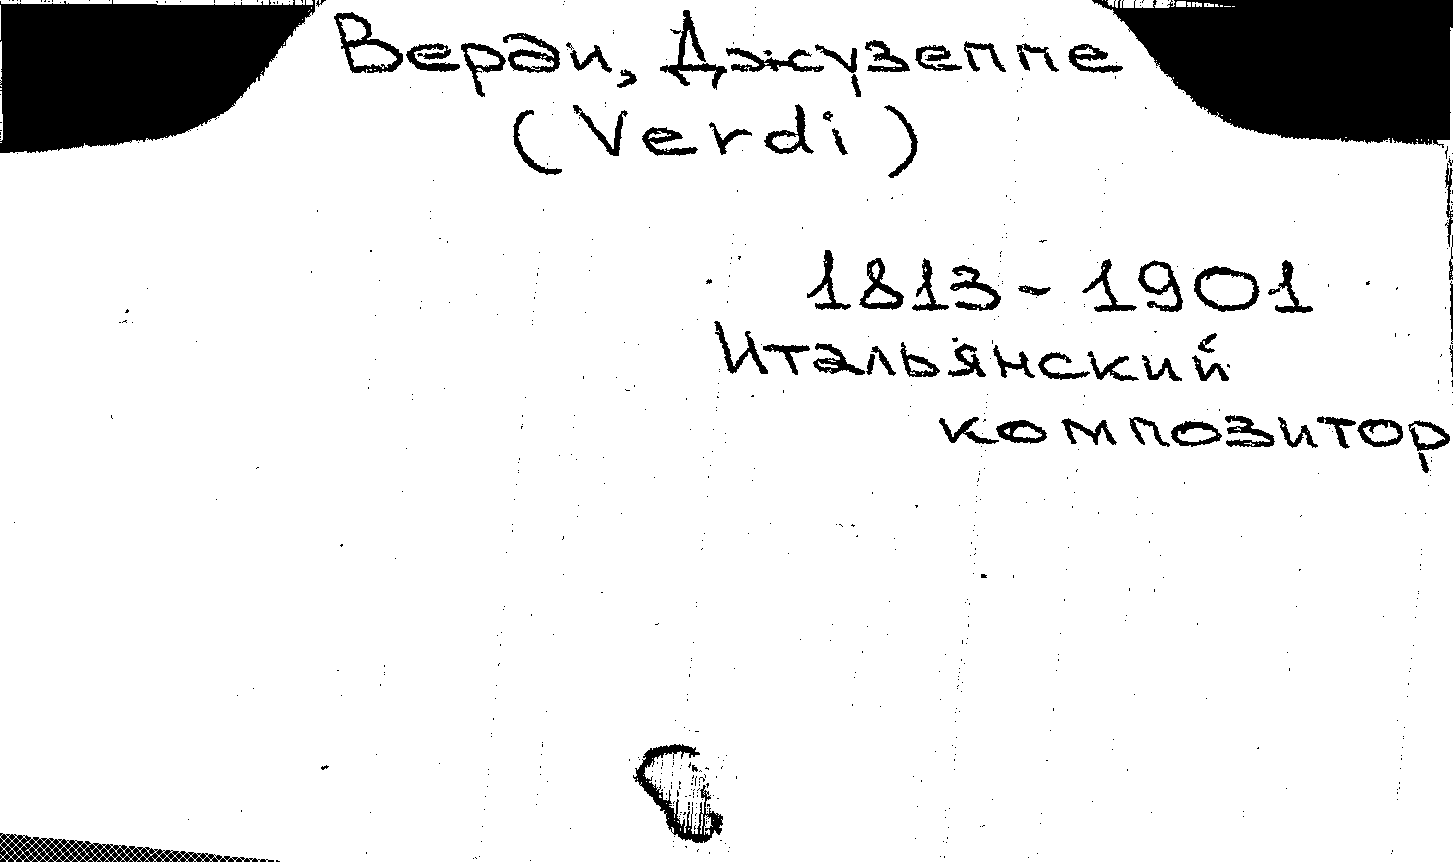 Верди, Джузеппе
(Verdi)
1813 - 1901
Итальянский
композитор